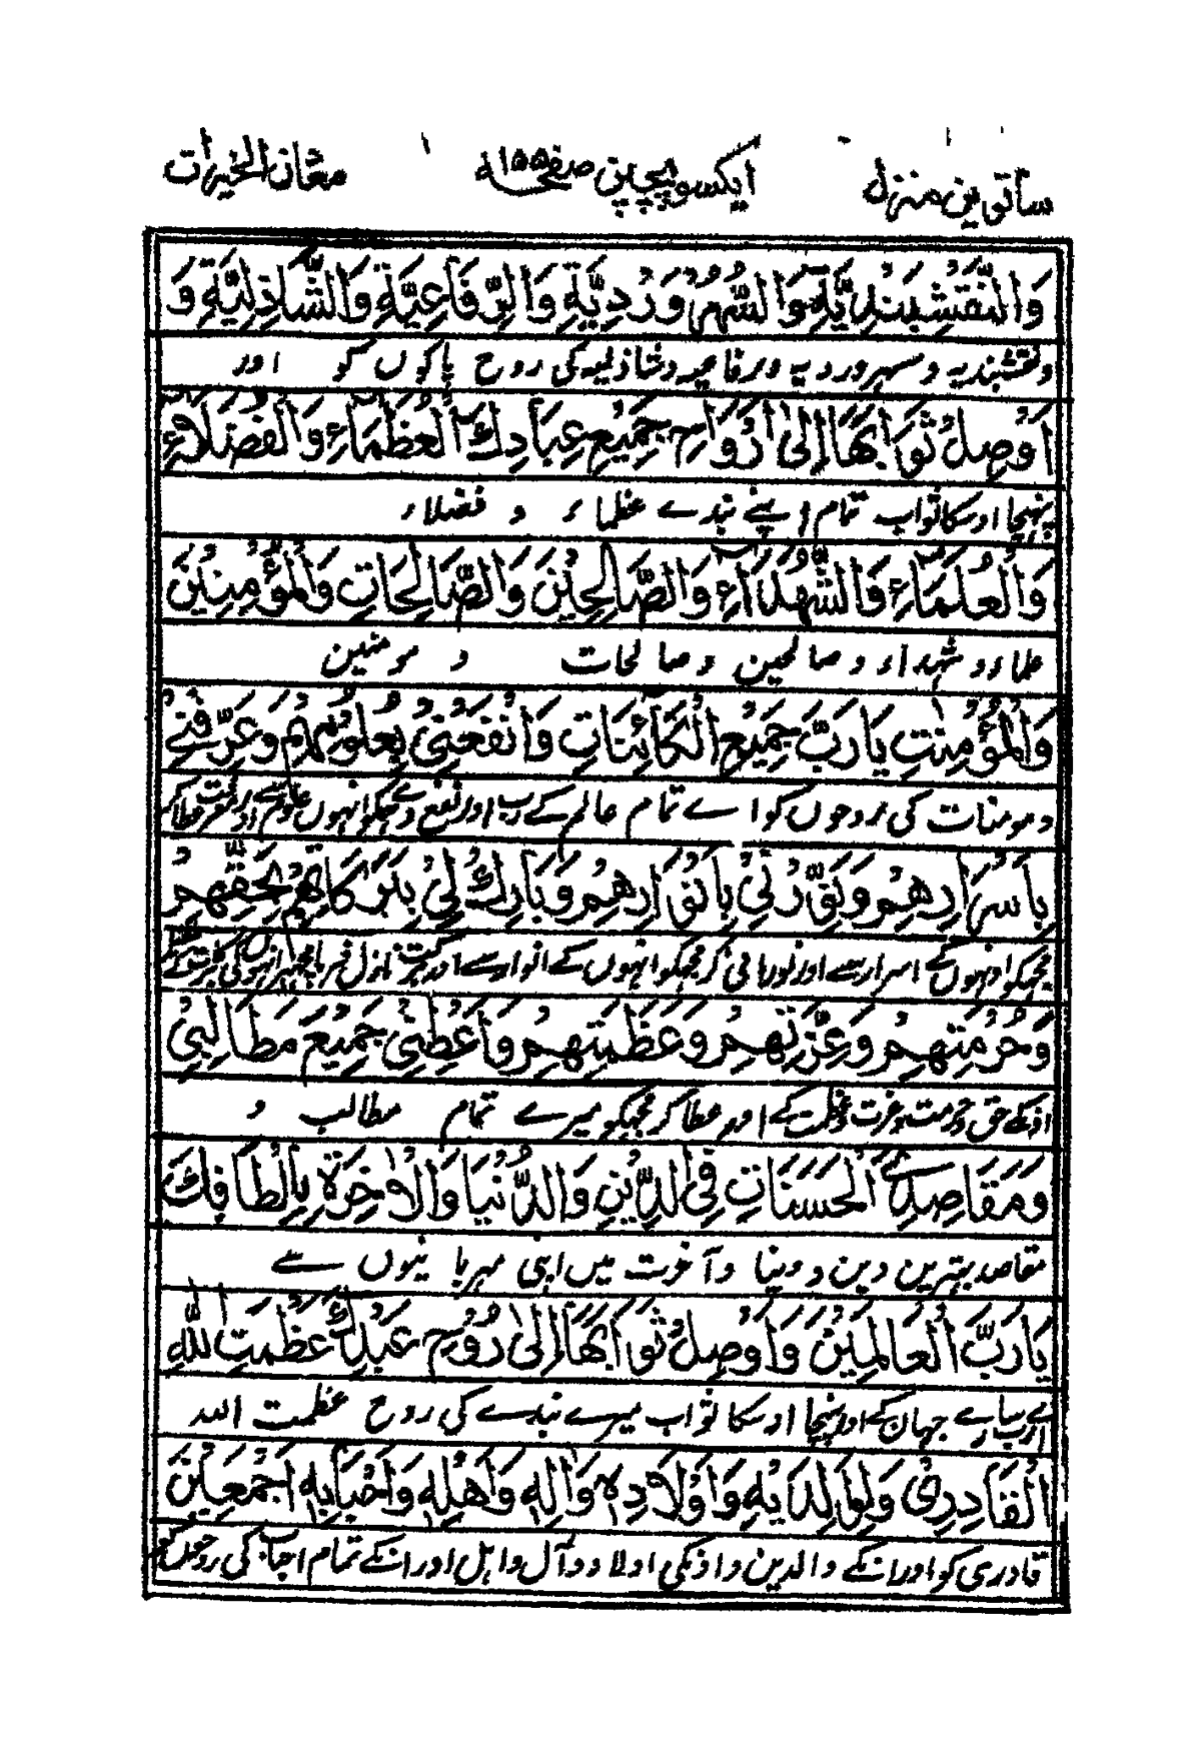 ساتوین منزل ایکسوپچپن صفحہ ۱۵۵ مغان الخیرات
وَالنَّقْشَبَنْدِیَّةِ وَالسُّهْرُوَرْدِیَّةِ وَالرِّفَاعِیَّةِ وَالشَّاذِلِیَّةِ وَ
ونقشبندیہ و سہروردیہ و رفاعیہ و شاذلیہ کی روح پاکوں کو اور
اَوْصِلْ ثَوَابَهَا اِلٰی اَرْوَاحِ جَمِیْعِ عِبَادِكَ الْعُظَمَاءِ وَالْفُضَلَاءِ
پنہچا اوسکا ثواب تمام اپنے بندے عظماء و فضلاء
وَالْعُلَمَاءِ وَالشُّهَدَاءِ وَالصَّالِحِیْنَ وَالصَّالِحَاتِ وَالْمُؤْمِنِیْنَ
علماء و شہداء و صالحین و صالحات و مومنین
وَالْمُؤْمِنٰتِ یَارَبَّ جَمِیْعِ الْكَائِنَاتِ وَانْفَعْنِیْ بِعُلُوْمِهِمْ وَعَرِّفْنِیْ
و مومنات کی روحوں کو اے تمام عالم کے رب اور نفع دے مجکو انہوں
بِاَسْرَارِهِمْ وَنَوِّرْنِیْ بِاَنْوَارِهِمْ وَبَارِكْ لِیْ بِبَرَكَاتِهِمْ بِحَقِّهِمْ
مجہکو اونہوں کے اسرار سے اور نورانی کر مجہکو انہوں کے انوار سے اور
وَحُرْمَتِهِمْ وَعِزَّتِهِمْ وَعَظَمَتِهِمْ وَاَعْطِنِیْ جَمِیْعَ مَطَالِبِیْ
اونکے حق و حرمت و عزت و عظمت کے اور عطا کر مجہکو میرے تمام مطالب و
وَمَقَاصِدِیْ الْحَسَنَاتِ فِی الدِّیْنِ وَالدُّنْیَا وَالْاٰخِرَةِ بِاَلْطَافِكَ
مقاصد بہترین دین و دینا و آخرت میں اپنی مہربانیوں سے
یَارَبَّ الْعَالَمِیْنَ وَاَوْصِلْ ثَوَابَهَا اِلٰی رُوْحِ عَبْدِكَ عَظْمَتِ اللهِ
اے رب سارے جہان کے اور پنہچا اوسکا ثواب میرے بندے کی روح عظمت اللہ
الْقَادِرِیْ وَلِوَالِدَیْهِ وَاَوْلَادِهٖ وَاٰلِهٖ وَاَهْلِهٖ وَاَحْبَابِهٖ اَجْمَعِیْنَ
قادری کو اور انکے والدین و اونکی اولاد و آل و اہل اور انکے تمام احباب کی روحوں کو